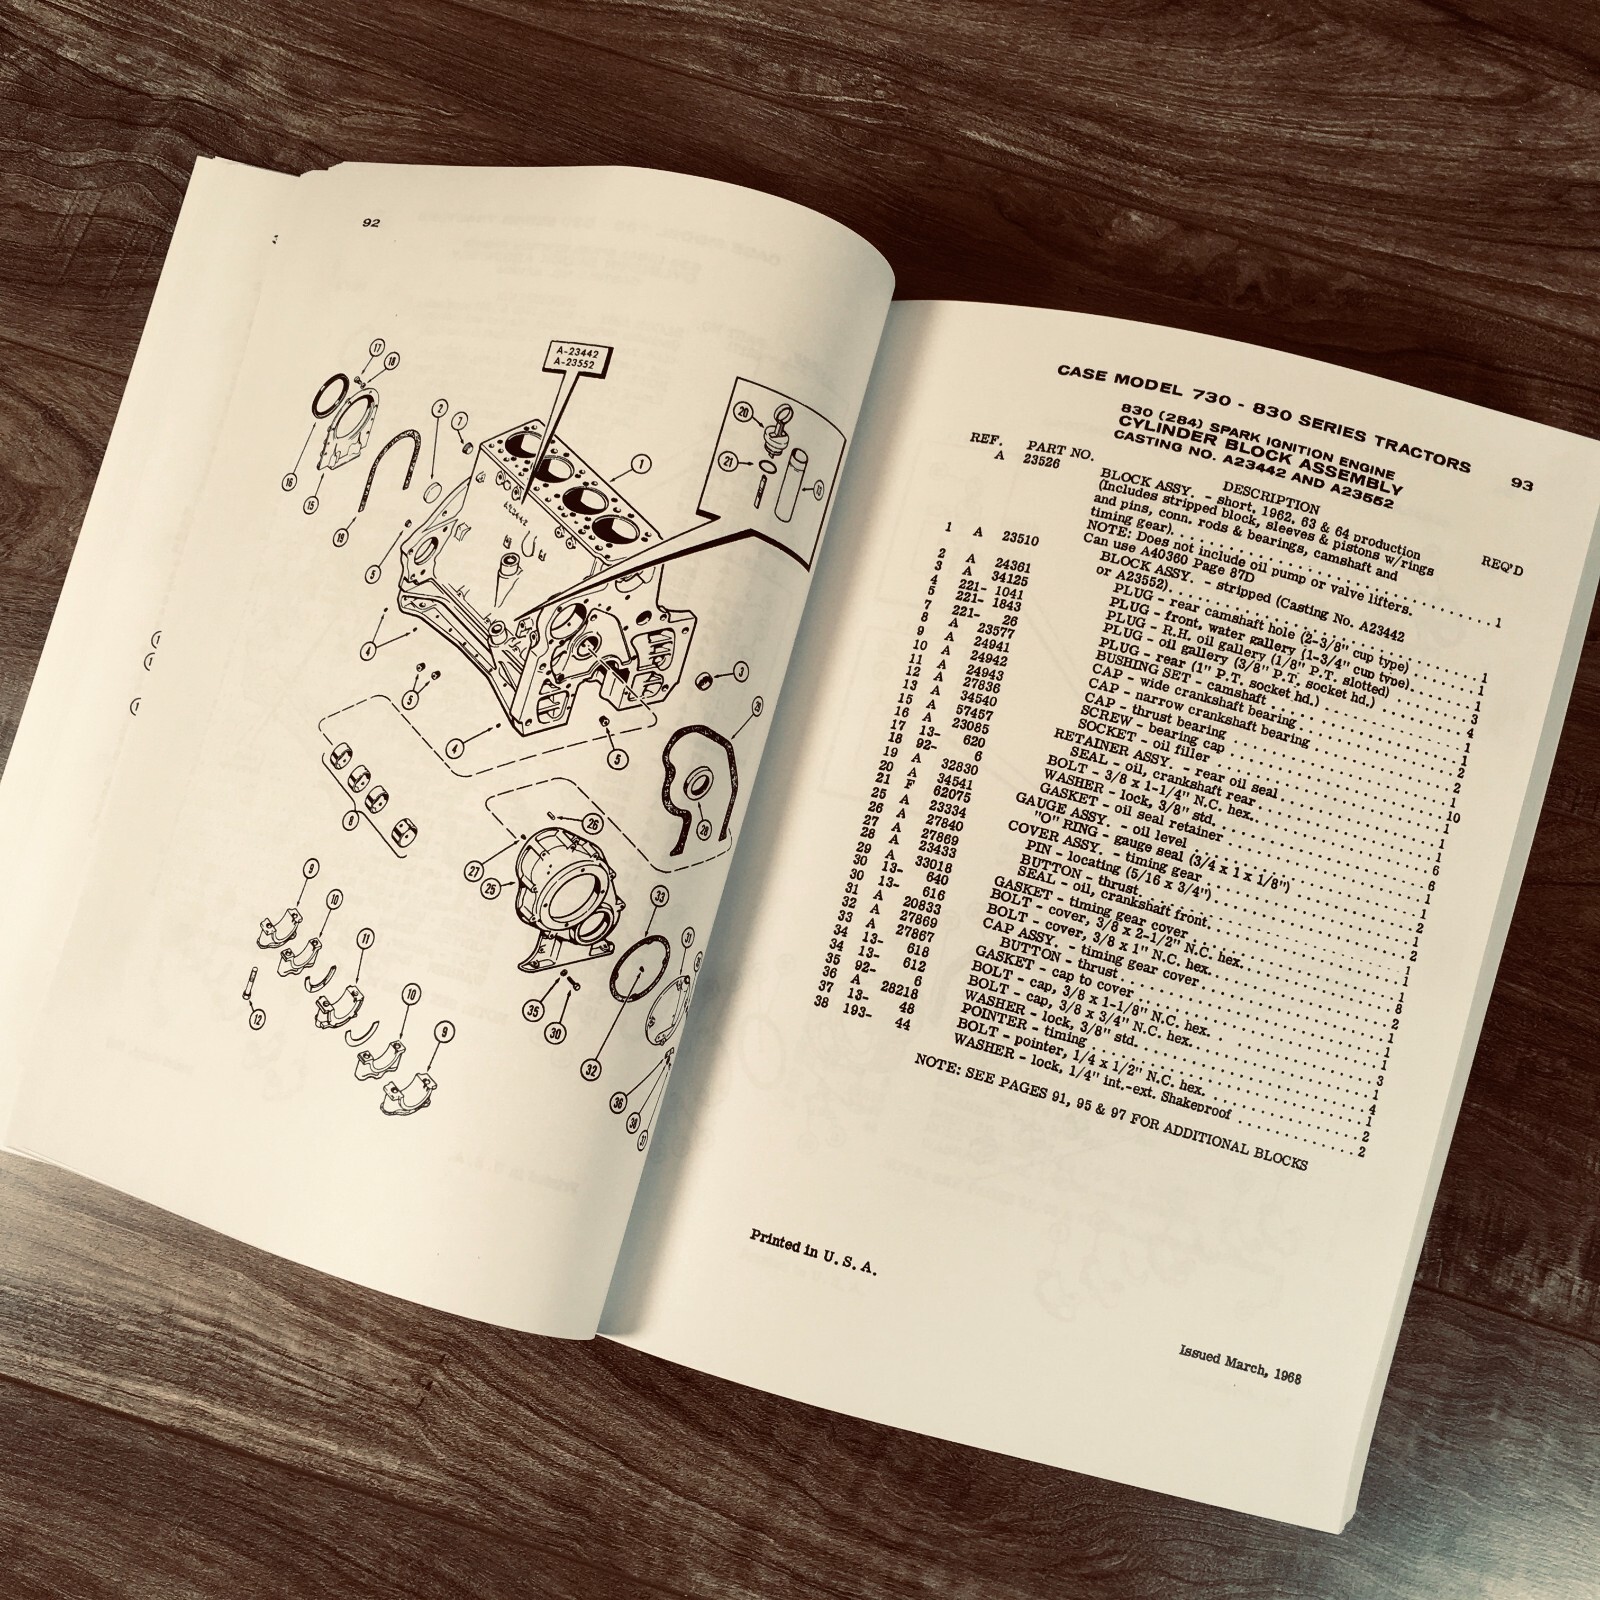 92
17
18
A-23442
A-23552
2
7
20
1
21
13
16
15
19
5
A23442
4
3
5
29
4
5
8
28
26
27
25
9
10
33
11
31
10
12
9
35
30
32
36
38
37
CASE MODEL 730 - 830 SERIES TRACTORS
93
830 (284) SPARK IGNITION ENGINE
CYLINDER BLOCK ASSEMBLY
CASTING NO. A23442 AND A23552
REF. PART NO. DESCRIPTION REQ'D
A 23526 BLOCK ASSY. - short, 1962, 63 & 64 production
(Includes stripped block, sleeves & pistons w/rings
and pins, conn. rods & bearings, camshaft and
timing gear). 1
NOTE: Does not include oil pump or valve lifters.
Can use A40360 Page 87D
1 A 23510 BLOCK ASSY. - stripped (Casting No. A23442
or A23552) 1
2 A 24361 PLUG - rear camshaft hole (2-3/8" cup type) 1
3 A 34125 PLUG - front, water gallery (1-3/4" cup type) 1
4 221- 1041 PLUG - R.H. oil gallery (1/8" P.T. slotted) 3
5 221- 1843 PLUG - oil gallery (3/8" P.T. socket hd.) 4
7 221- 26 PLUG - rear (1" P.T. socket hd.) 1
8 A 23577 BUSHING SET - camshaft 1
9 A 24941 CAP - wide crankshaft bearing 2
10 A 24942 CAP - narrow crankshaft bearing 2
11 A 24943 CAP - thrust bearing 1
12 A 27636 SCREW - bearing cap 10
13 A 34540 SOCKET - oil filler 1
15 A 57457 RETAINER ASSY. - rear oil seal 1
16 A 23085 SEAL - oil, crankshaft rear 1
17 13- 620 BOLT - 3/8 x 1-1/4" N.C. hex. 6
18 92- 6 WASHER - lock, 3/8" std. 6
19 A 32830 GASKET - oil seal retainer 1
20 A 34541 GAUGE ASSY. - oil level 1
21 F 62075 "O" RING - gauge seal (3/4 x 1 x 1/8") 1
25 A 23334 COVER ASSY. - timing gear 1
26 A 27840 PIN - locating (5/16 x 3/4") 2
27 A 27869 BUTTON - thrust 1
28 A 23433 SEAL - oil, crankshaft front 1
29 A 33018 GASKET - timing gear cover 1
30 13- 640 BOLT - cover, 3/8 x 2-1/2" N.C. hex. 8
30 13- 616 BOLT - cover, 3/8 x 1" N.C. hex. 2
31 A 20833 CAP ASSY. - timing gear cover 1
32 A 27869 BUTTON - thrust 1
33 A 27867 GASKET - cap to cover 1
34 13- 618 BOLT - cap, 3/8 x 1-1/8" N.C. hex. 3
34 13- 612 BOLT - cap, 3/8 x 3/4" N.C. hex. 1
35 92- 6 WASHER - lock, 3/8" std. 4
36 A 28218 POINTER - timing 1
37 13- 48 BOLT - pointer, 1/4 x 1/2" N.C. hex. 2
38 193- 44 WASHER - lock, 1/4" int.-ext. Shakeproof 2
NOTE: SEE PAGES 91, 95 & 97 FOR ADDITIONAL BLOCKS
Printed in U. S. A.
Issued March, 1968